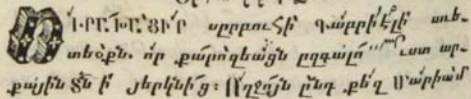 ՈՒՐԱԽԱՑԻ՛Ր սրբուհի գաբրիէլի աւե
տեօքն. որ քարոզեացն ըզգալուստ ար
քային ՏՆ ի՛ յերկնից: Ողջոյն ընդ քեզ Մարիամ